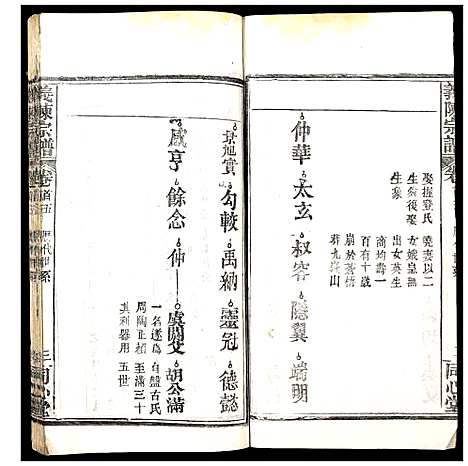 義陳宗譜
娶握登氏
生舜後娶
生象
堯妻以二
女娥皇無
出女英生
商均壽一
百有十歲
崩於蒼梧
葬九嶷山
仲華 太玄 叔容 隱翼 端明
同心堂
義陳宗譜
卷首五 歷代世系
勾較 禹納 靈冠 德懿
咸亨 餘念 仲 虞閼父 胡公滿
一名遂為
周陶正相
其利器用
自盤古氏
至滿三十
五世
三 同心堂